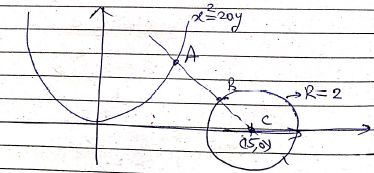 x²=20y
A
B
R=2
C
(15,0)